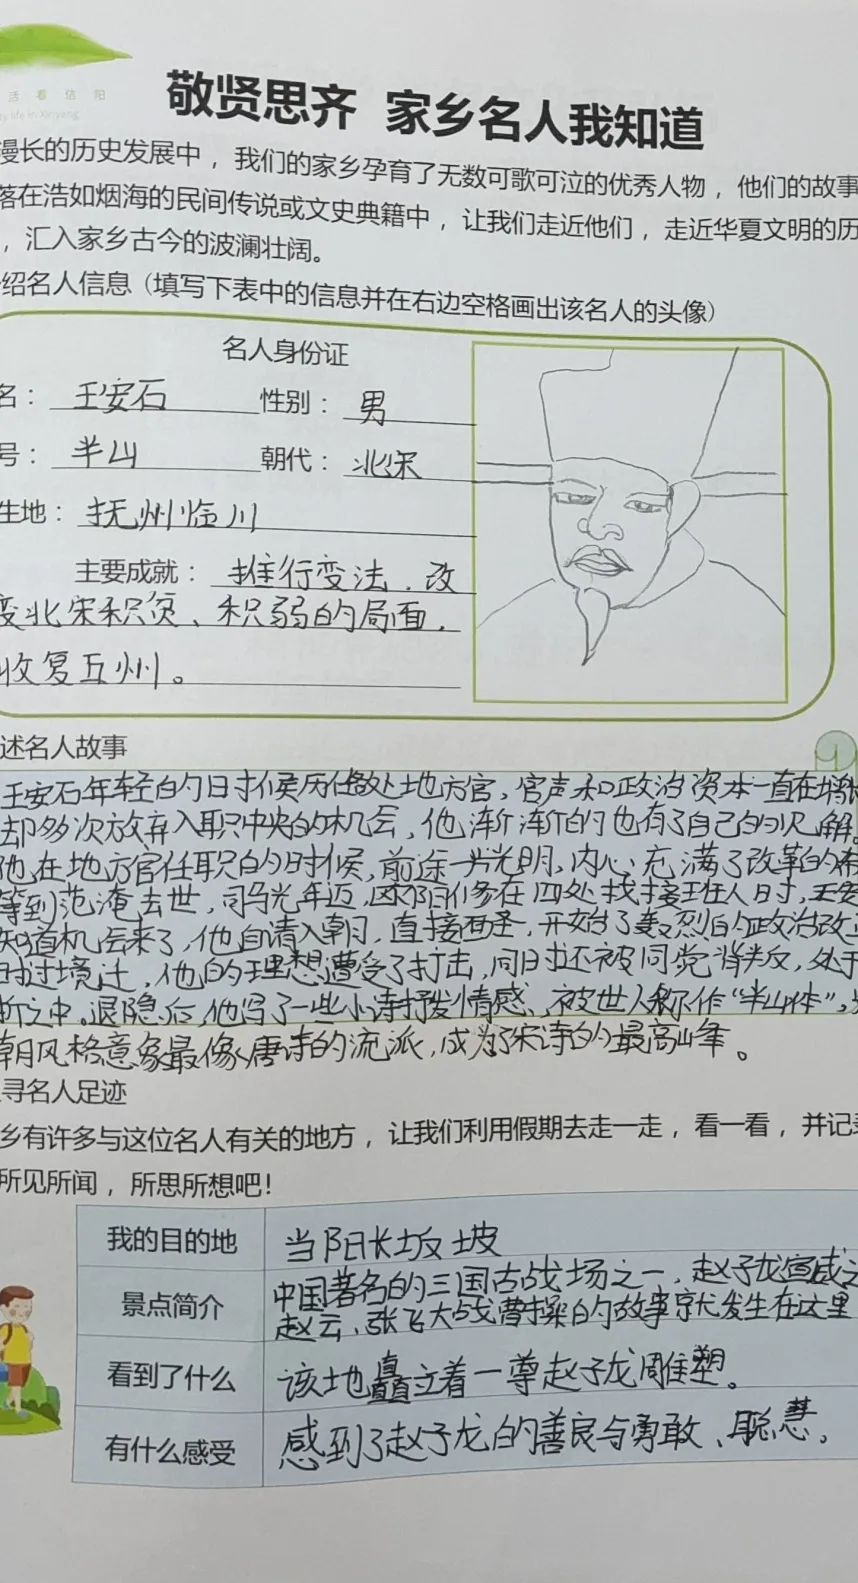 活看信阳
ty life in Xinyang
敬贤思齐 家乡名人我知道
漫长的历史发展中，我们的家乡孕育了无数可歌可泣的优秀人物，他们的故事
落在浩如烟海的民间传说或文史典籍中，让我们走近他们，走近华夏文明的历
，汇入家乡古今的波澜壮阔。
绍名人信息（填写下表中的信息并在右边空格画出该名人的头像）
名人身份证
名：王安石 性别：男
号：半山 朝代：北宋
生地：抚州临川
主要成就：推行变法，改
变北宋积贫、积弱的局面，
收复五州。
述名人故事
王安石年轻的时候历任数处地方官，官声和政治资本一直在增
却多次放弃入职中央的机会，他渐渐的也有了自己的见解。
他在地方官任职的时候，前途一片光明，内心充满了改革的希
等到范淹去世，司马光年迈，欧阳修在四处找接班人时，王安
知道机会来了，他自请入朝，直接面圣，开始了轰烈的政治改
时过境迁，他的理想遭受了打击，同时还被同党背叛，处于
之中。退隐后，他写了一些小诗抒发情感，被世人称作“半山体”，
朝风格意象最像唐诗的流派，成为了宋诗的最高峰。
寻名人足迹
乡有许多与这位名人有关的地方，让我们利用假期去走一走，看一看，并记录
所见所闻，所思所想吧！
我的目的地 当阳长坂坡
景点简介 中国著名的三国古战场之一，赵子龙宣威之
赵云、张飞大战曹操的故事就发生在这里
看到了什么 该地矗立着一尊赵子龙雕塑。
有什么感受 感到了赵子龙的善良与勇敢、聪慧。